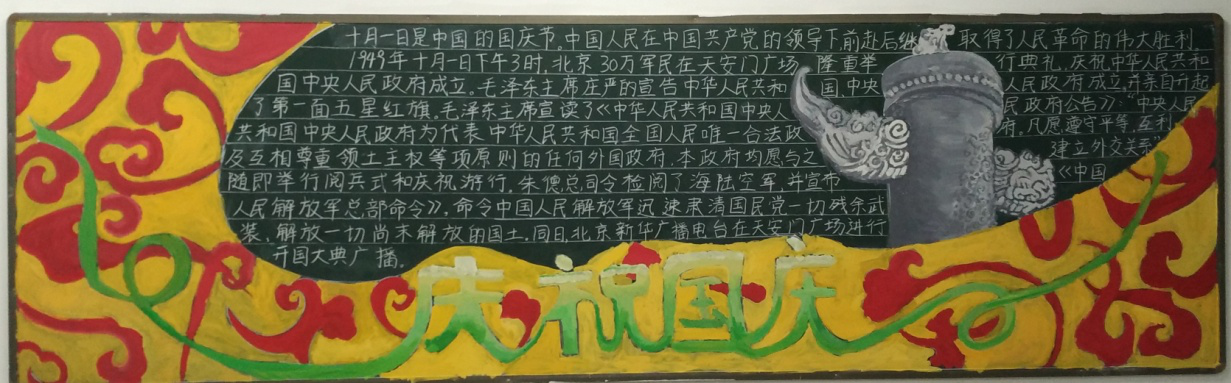 十月一日是中国的国庆节。中国人民在中国共产党的领导下,前赴后继 取得了人民革命的伟大胜利。
1949年十月一日下午3时,北京30万军民在天安门广场 隆重举 行典礼,庆祝中华人民共和
国中央人民政府成立。毛泽东主席庄严的宣告中华人民共和 国中央 人民政府成立,并亲自升起
了第一面五星红旗。毛泽东主席宣读了《中华人民共和国中央人 民政府公告》:“中央人民
共和国中央人民政府为代表中华人民共和国全国人民唯一合法政 府,凡愿遵守平等、互利
及互相尊重领土主权等项原则的任何外国政府,本政府均愿与之 建立外交关系”
随即举行阅兵式和庆祝游行。朱德总司令检阅了海陆空军,并宣布 《中国
人民解放军总部命令》,命令中国人民解放军迅速肃清国民党一切残余武
装、解放一切尚未解放的国土。同日,北京新华广播电台在天安门广场进行
开国大典广播。
庆祝国庆